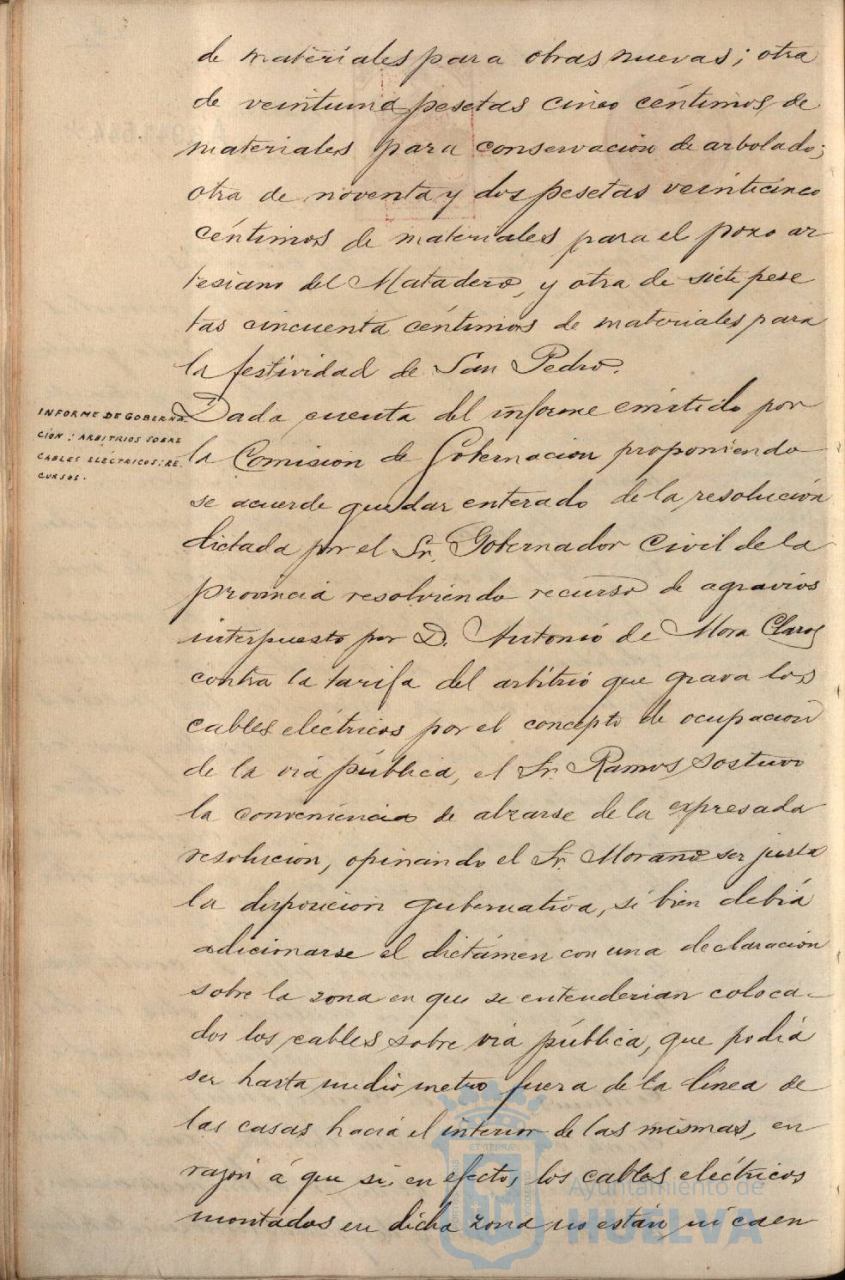 de materiales para obras nuevas; otra
de veintiuna pesetas cinco céntimos, de
materiales para conservación de arbolado;
otra de noventa y dos pesetas veinticinco
céntimos de materiales para el pozo ar-
tesiano del Matadero, y otra de siete pese
tas cincuenta céntimos de materiales para
la festividad de San Pedro.
INFORME DE GOBERNA-
CIÓN: ARBITRIOS SOBRE
CABLES ELÉCTRICOS: RE-
CURSOS.
Dada cuenta del informe emitido por
la Comisión de Gobernación proponiendo
se acuerde quedar enterado de la resolución
dictada por el Sr. Gobernador Civil de la
provincia resolviendo recurso de agravios
interpuesto por D. Antonio de Mora Claros
contra la tarifa del arbitrio que grava los
cables eléctricos por el concepto de ocupación
de la vía pública, el Sr. Ramos sostuvo
la conveniencia de alzarse de la expresada
resolución, opinando el Sr. Morano ser justa
la disposición gubernativa, si bien debía
adicionarse el dictámen con una declaración
sobre la zona en que se entenderían coloca-
dos los cables sobre vía pública, que podía
ser hasta medio metro fuera de la línea de
las casas hacia el interior de las mismas, en
razón á que si, en efecto, los cables eléctricos
montados en dicha zona no están ni caen
Ayuntamiento de
HUELVA